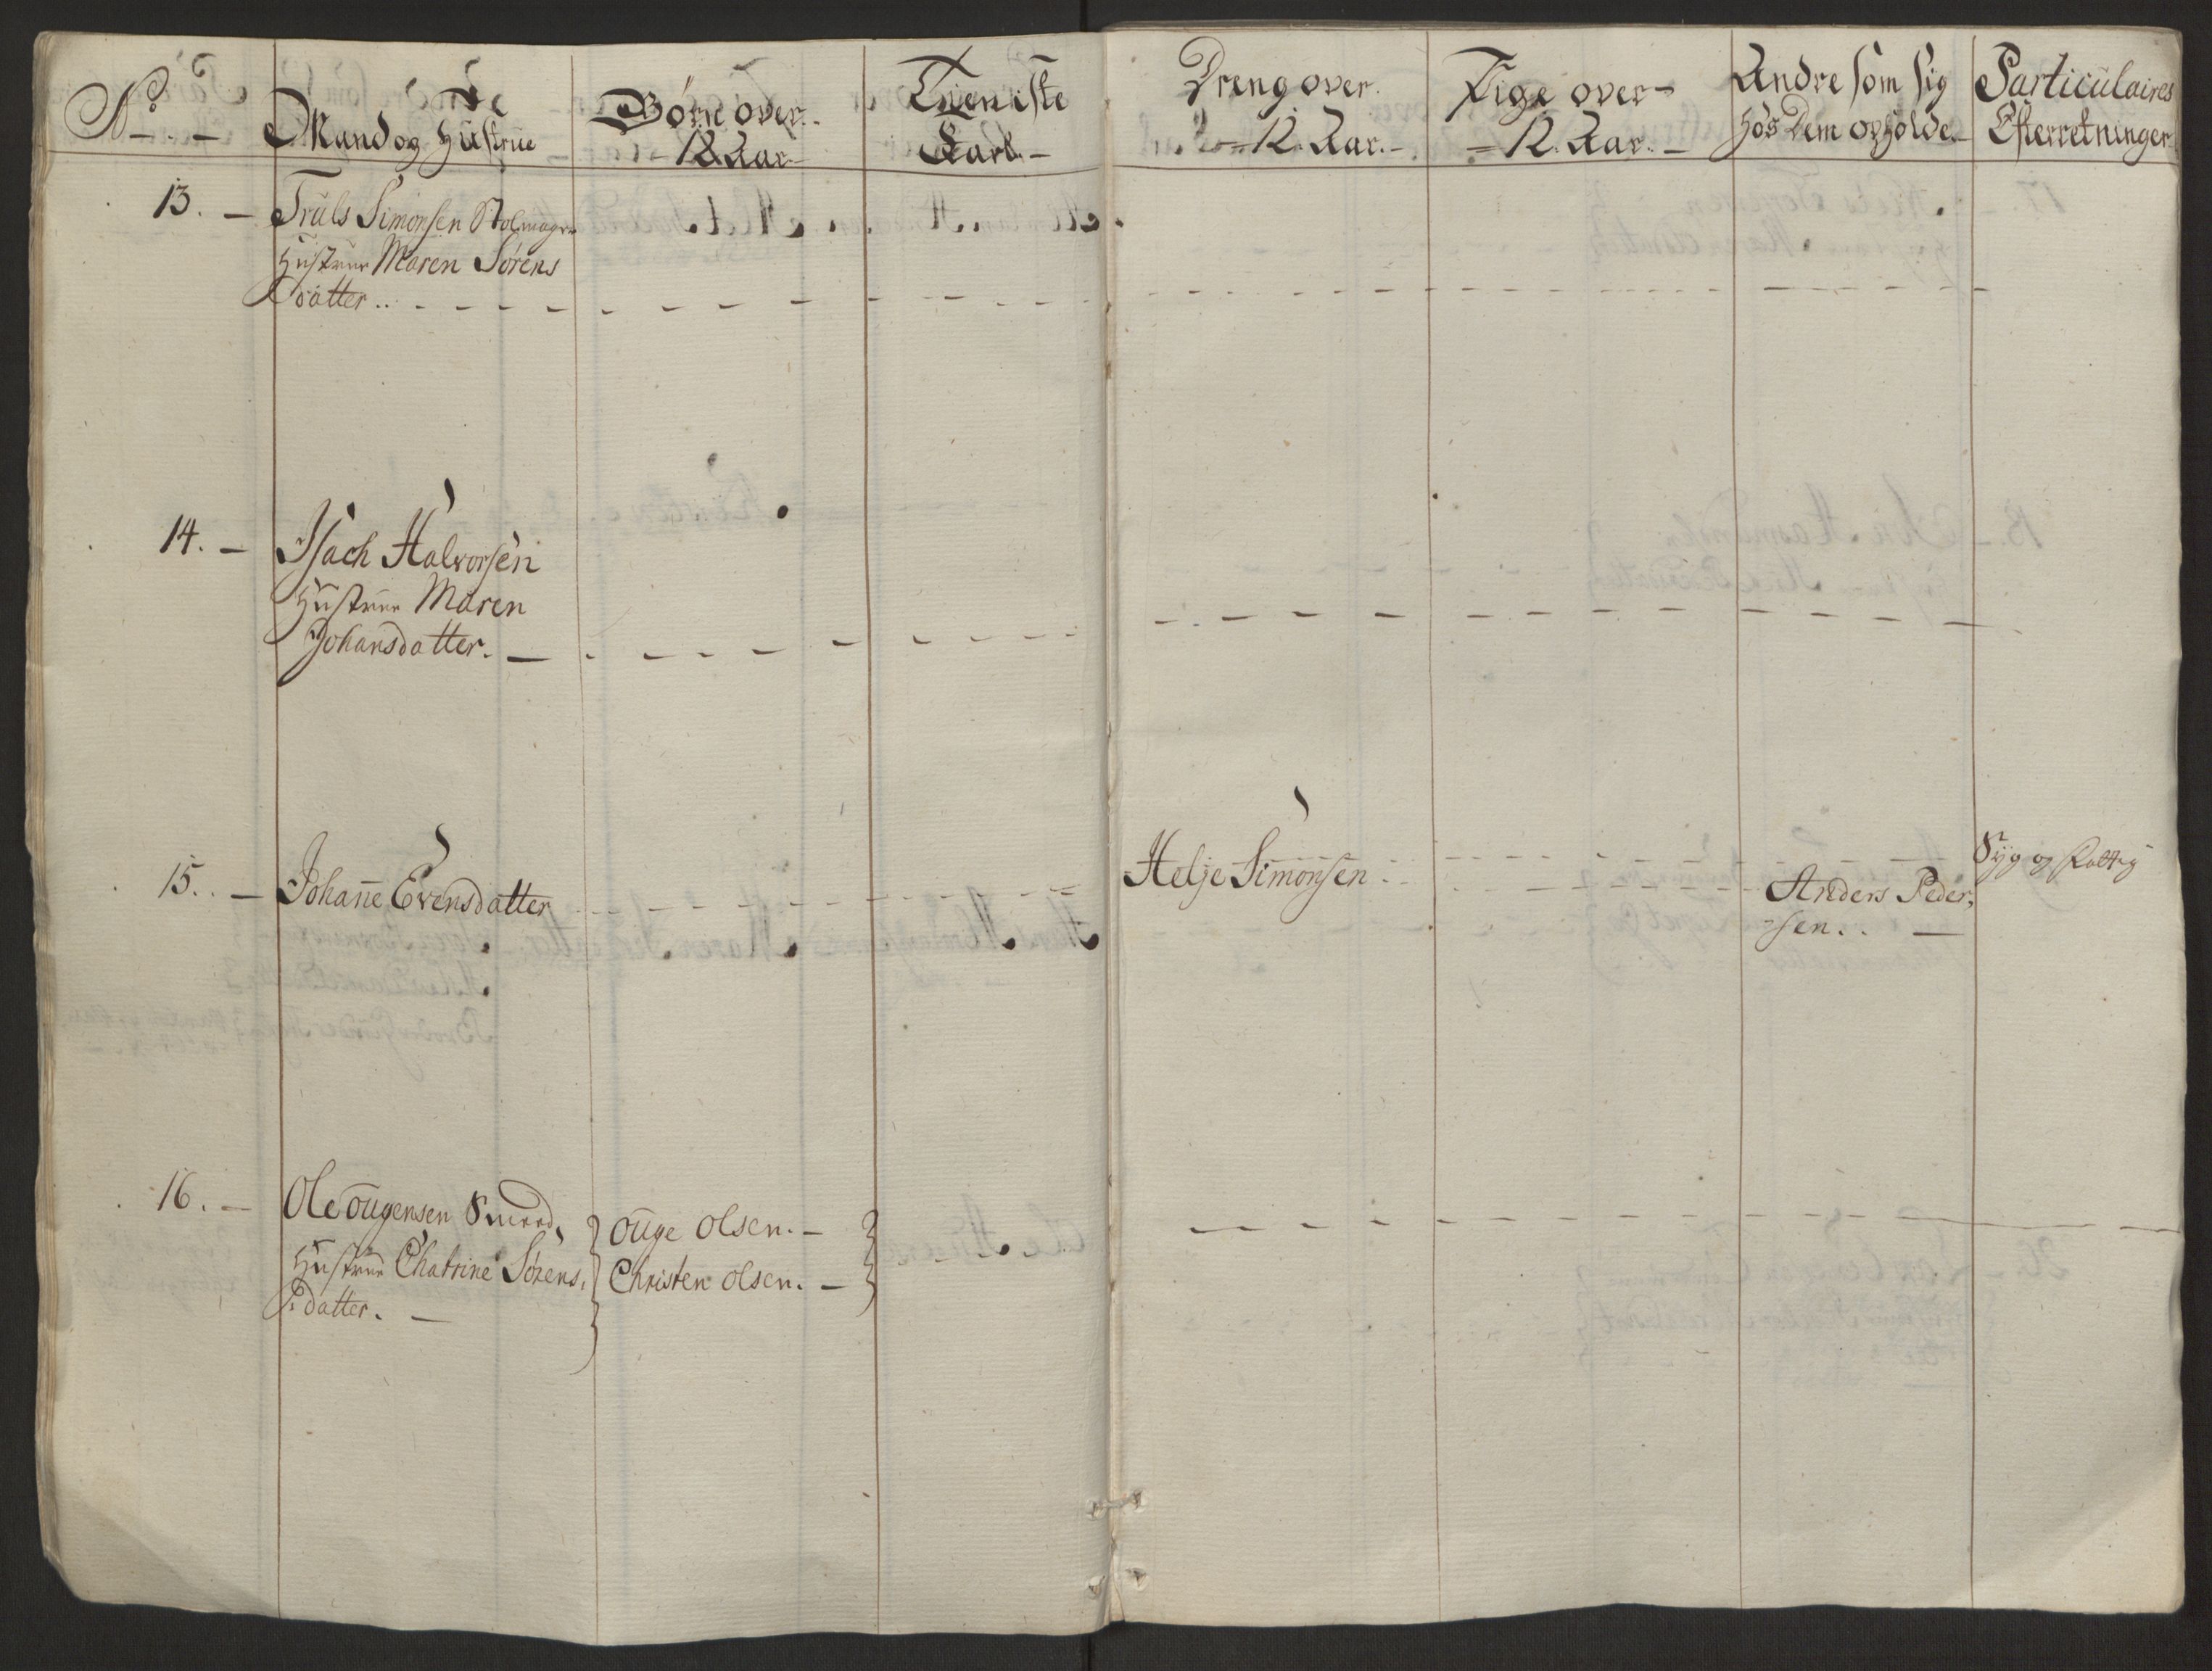 No. -
Mand og Hustrue
Børn over
18 Aar
Tieniste
Karl. -
Dreng over
12. Aar. -
Pige over
12. Aar. -
Andre som sig
hos Dem opholde. -
Particulaires
Efterretninger
13. - Truls Simonsen Stolmager
Hustrue Maren Sørens
Datter. .
14. - Isach Halvorsen
Hustrue Maren
Johansdatter. -
15. - Johanne Evensdatter
Helje Simonsen
Anders Peder,
sen. . -
Syg og fattig
16. - Ole ougensen Smed,
Hustrue Chatrine Sørens,
datter. -
ouge olsen. -
Christen olsen. -